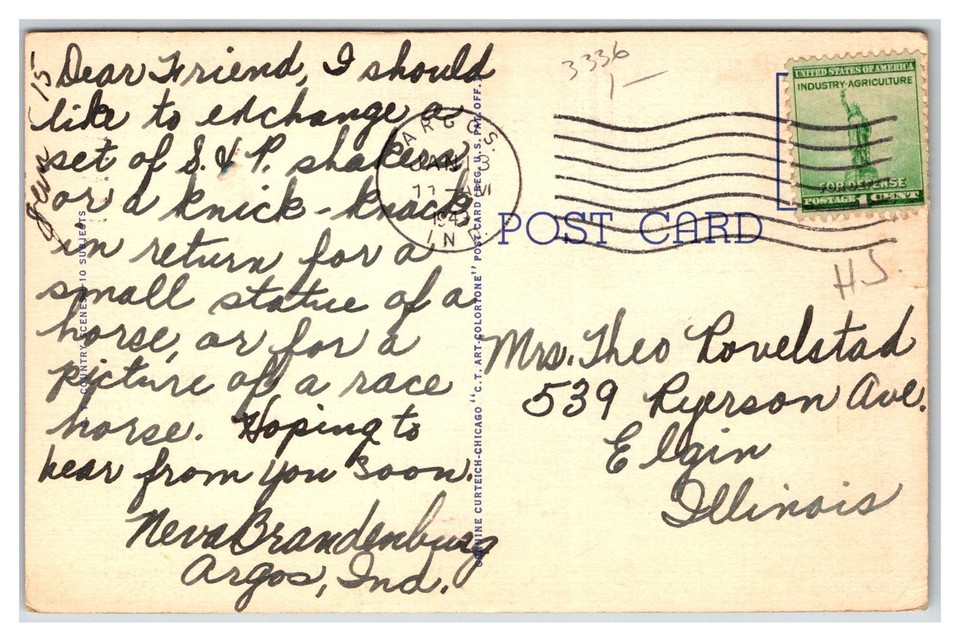 Jan 15
Dear Friend, I should
like to exchange a
set of S. & P. shakers
or a knick-knack
in return for a
small statue of a
horse, or for a
picture of a race
horse. Hoping to
hear from you soon.
Neva Brandenburg
Argos, Ind.
COUNTRY SCENES—10 SUBJECTS
GENUINE CURTEICH-CHICAGO "C. T. ART-COLORTONE" POST CARD (REG. U. S. PAT. OFF.)
ARGOS
JAN 15
11 AM
IND.
3336
1—
POST CARD
UNITED STATES OF AMERICA
INDUSTRY·AGRICULTURE
FOR DEFENSE
POSTAGE 1 CENT
H.S.
Mrs. Theo Rovelstad
539 Ryerson Ave.
Elgin
Illinois